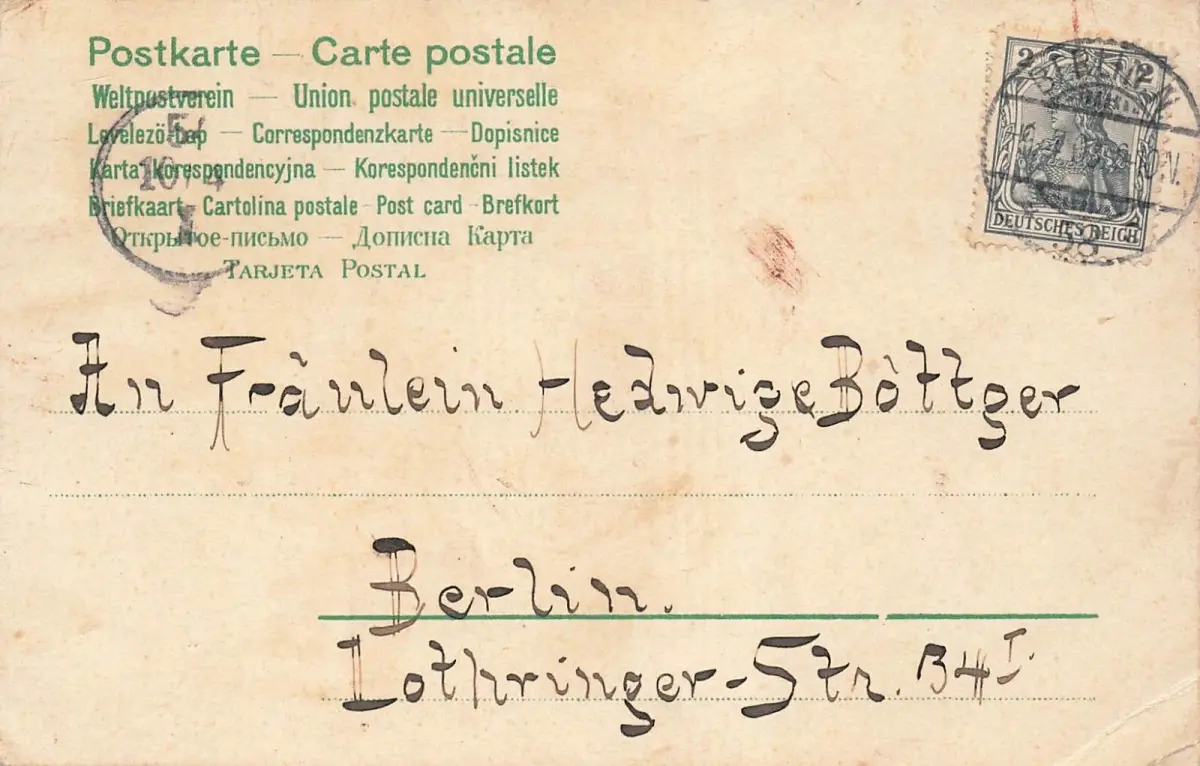 Postkarte — Carte postale
Weltpostverein — Union postale universelle
Levelező-Lap — Correspondenzkarte — Dopisnice
Karta Korespondencyjna — Korespondenčni listek
Briefkaart - Cartolina postale - Post card - Brefkort
Открытое-письмо — Дописна Карта
TARJETA POSTAL
2 2
BERLIN. N.
DEUTSCHES REICH
An Fräulein Hedwige Böttger
Berlin.
Lothringer-Str. 34 I.